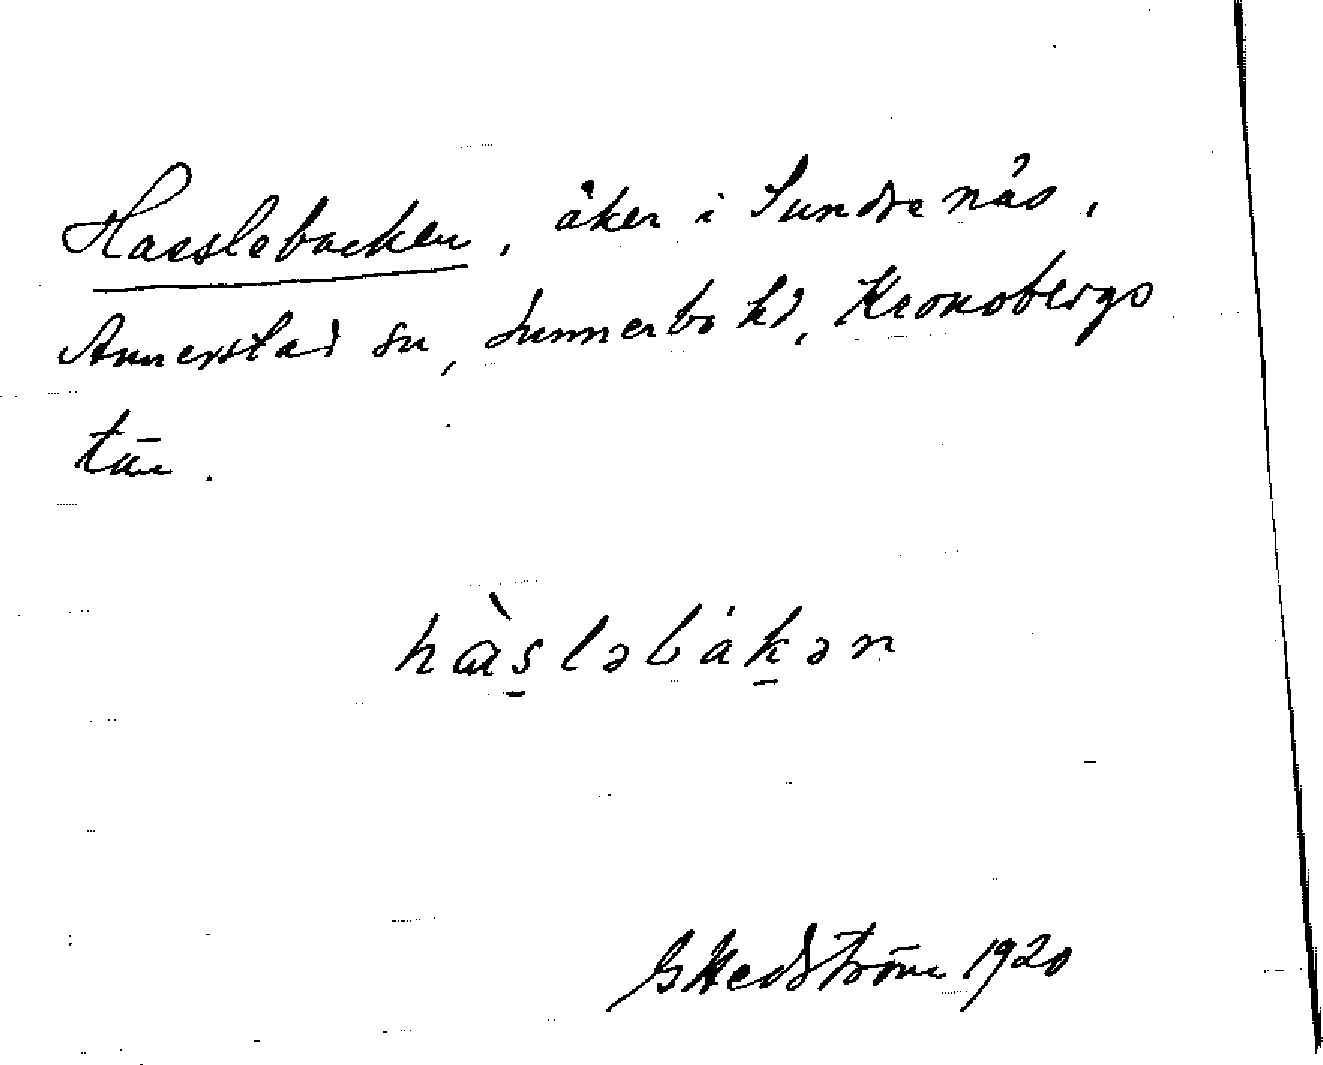 Hasslebacken, åker i Sundranäs,
Annerstad sn, Sunnerbo hd, Kronobergs
län.
hàsləbákən
G Hedström 1920